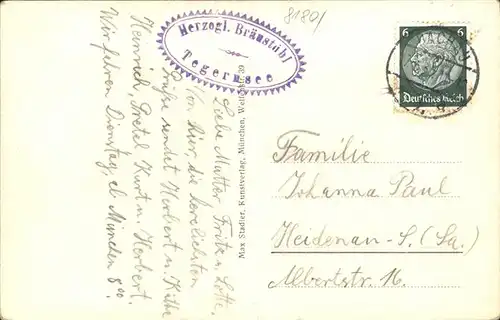 8180/
Herzogl. Bräustübl
Tegernsee
6 6
Deutsches Reich
Max Stadler, Kunstverlag, München,
Liebe Mutter, Fritz u. Lotte,
Von hier die herzlichsten
Grüße sendet Herbert u. Käthe
Heinrich, Gretel Kurt u. Herbert.
Wir fahren Dienstag, ab München 8⁰⁰.
Familie
Johanna Paul
Heidenau-S. (Sa.)
Albertstr. 16.